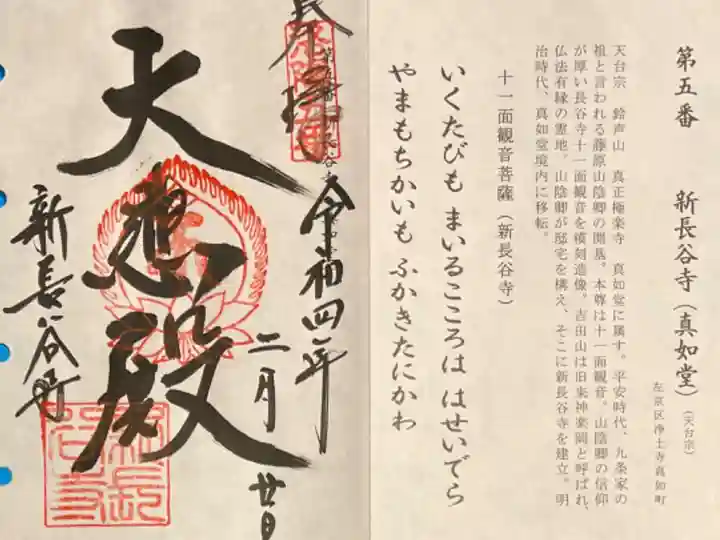 第五番 新長谷寺(真如堂)(天台宗)
左京区浄土寺真如町
天台宗 鈴声山 真正極楽寺 真如堂に属す。平安時代、九条家の
祖と言われる藤原山陰卿の開基。本尊は十一面観音。山陰卿の信仰
が厚い長谷寺十一面観音を模刻造像。吉田山は旧来神楽岡と呼ばれ、
仏法有縁の霊地。山陰卿が邸宅を構え、そこに新長谷寺を建立。明
治時代、真如堂境内に移転。
十一面観音菩薩(新長谷寺)
いくたびも まいるこころは はせいでら
やまもちかいも ふかきたにかわ
奉拝
令和四年
二月 廿日
大悲殿
新長谷寺